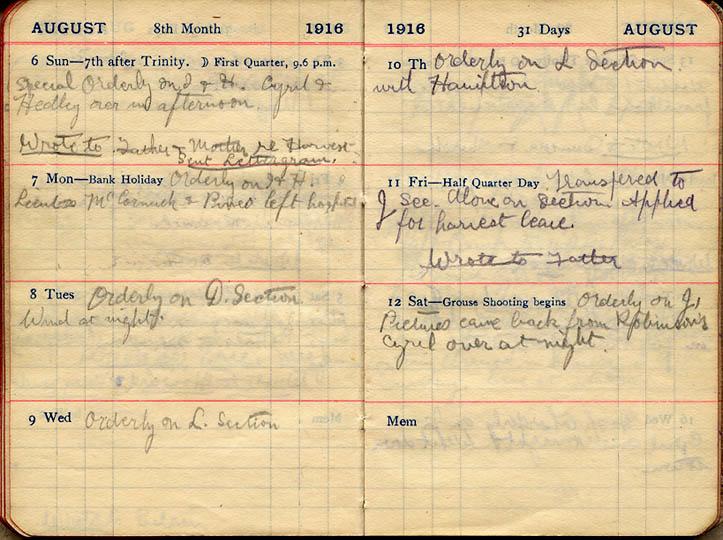 AUGUST 8th Month 1916
6 Sun—7th after Trinity. ☽ First Quarter, 9.6 p.m.
Special Orderly on J & H. Cyril &
Hedley over in afternoon.
Wrote to Father & Mother re Harvest
Sent Lettergram.
7 Mon—Bank Holiday Orderly on J & H.
McCormick & left
8 Tues Orderly on D. Section
Wind at night.
9 Wed Orderly on L. Section
1916 31 Days AUGUST
10 Th Orderly on L Section
with Hamilton
11 Fri—Half Quarter Day Transfered to
J Sec. Alone on section. Applied
for harvest leave.
Wrote to Father
12 Sat—Grouse Shooting begins Orderly on J,
Pictures came back from Robinson's
Cyril over at night.
Mem